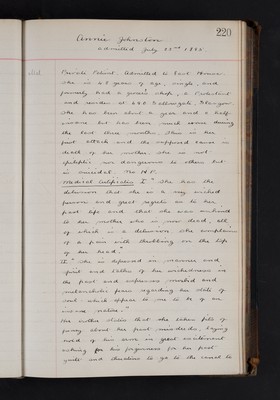 220
Annie Johnston
Admitted July 23rd 1885.
Private Patient. Admitted to East House.
She is 28 years of age, single, and
formerly had a grocer's shop, a Protestant
and resides at 626 Gallowgate, Glasgow.
She has been about a year and a half
insane but has been much worse during
the last three months. This is her
first attack and the supposed cause is
death of her mother. She is not
epileptic nor dangerous to others but
is suicidal. No H.P.
Medical Certificates I. "She has the
delusion that she is a very wicked
person and great regrets as to her
past life and that she was unkind
to her mother who is now dead, all
of which is a delusion. She complains
of a pain with throbbing on the top
of her head."
II. "She is depressed in manner and
spirit and talks of her wickedness in
the past and expresses morbid and
melancholic fears regarding her state of
soul which appear to me to be of an
insane nature."
Her mother states that she takes fits of
frenzy about her past misdeeds, laying
hold of her in great excitement
asking for his forgiveness for her past
guilt and threatens to go to the canal to